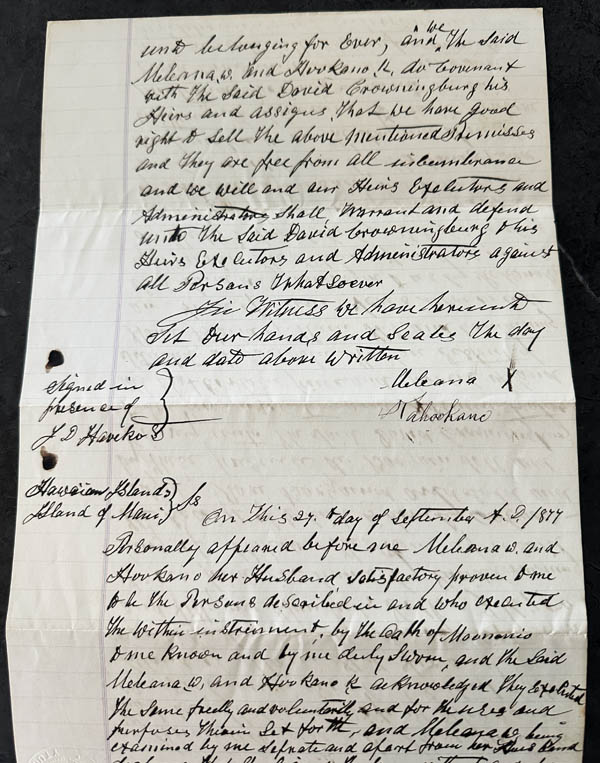 unto belonging for Ever, and we The Said
Meleana w. and Hookano k. do Covenant
with The Said David Crowningburg his
Heirs and assigns That we have good
right to Sell The above mentioned Premisses
and They are free from all incumbrance
and we will and our Heirs Executors and
Administrators Shall Warrant and defend
unto The Said David Crowningburg & his
Heirs Executors and Administrators against
all Persons Whatsoever
In Witness we have hereunt
Set Our hands and Seales The day
and date above Written
Meleana X
Kahookano
Signed in
presence of
J D
Hawaiian Islands
Island of Maui
Ss
On This 27. day of September A.D. 1877
Personally appeared before me Meleana w. and
Hookano her Husband satisfactory proven to me
to be The Persons described in and who executed
The within instrument, by the Oath of
to me Known and by me duly Sworn, and the Said
Meleana w. and Hookano k acknowledged They Executed
The Same freely and voluntarily and for the uses and
purposes Therein Set forth, and Meleana w. being
examined by me seprate and apart from her Husband